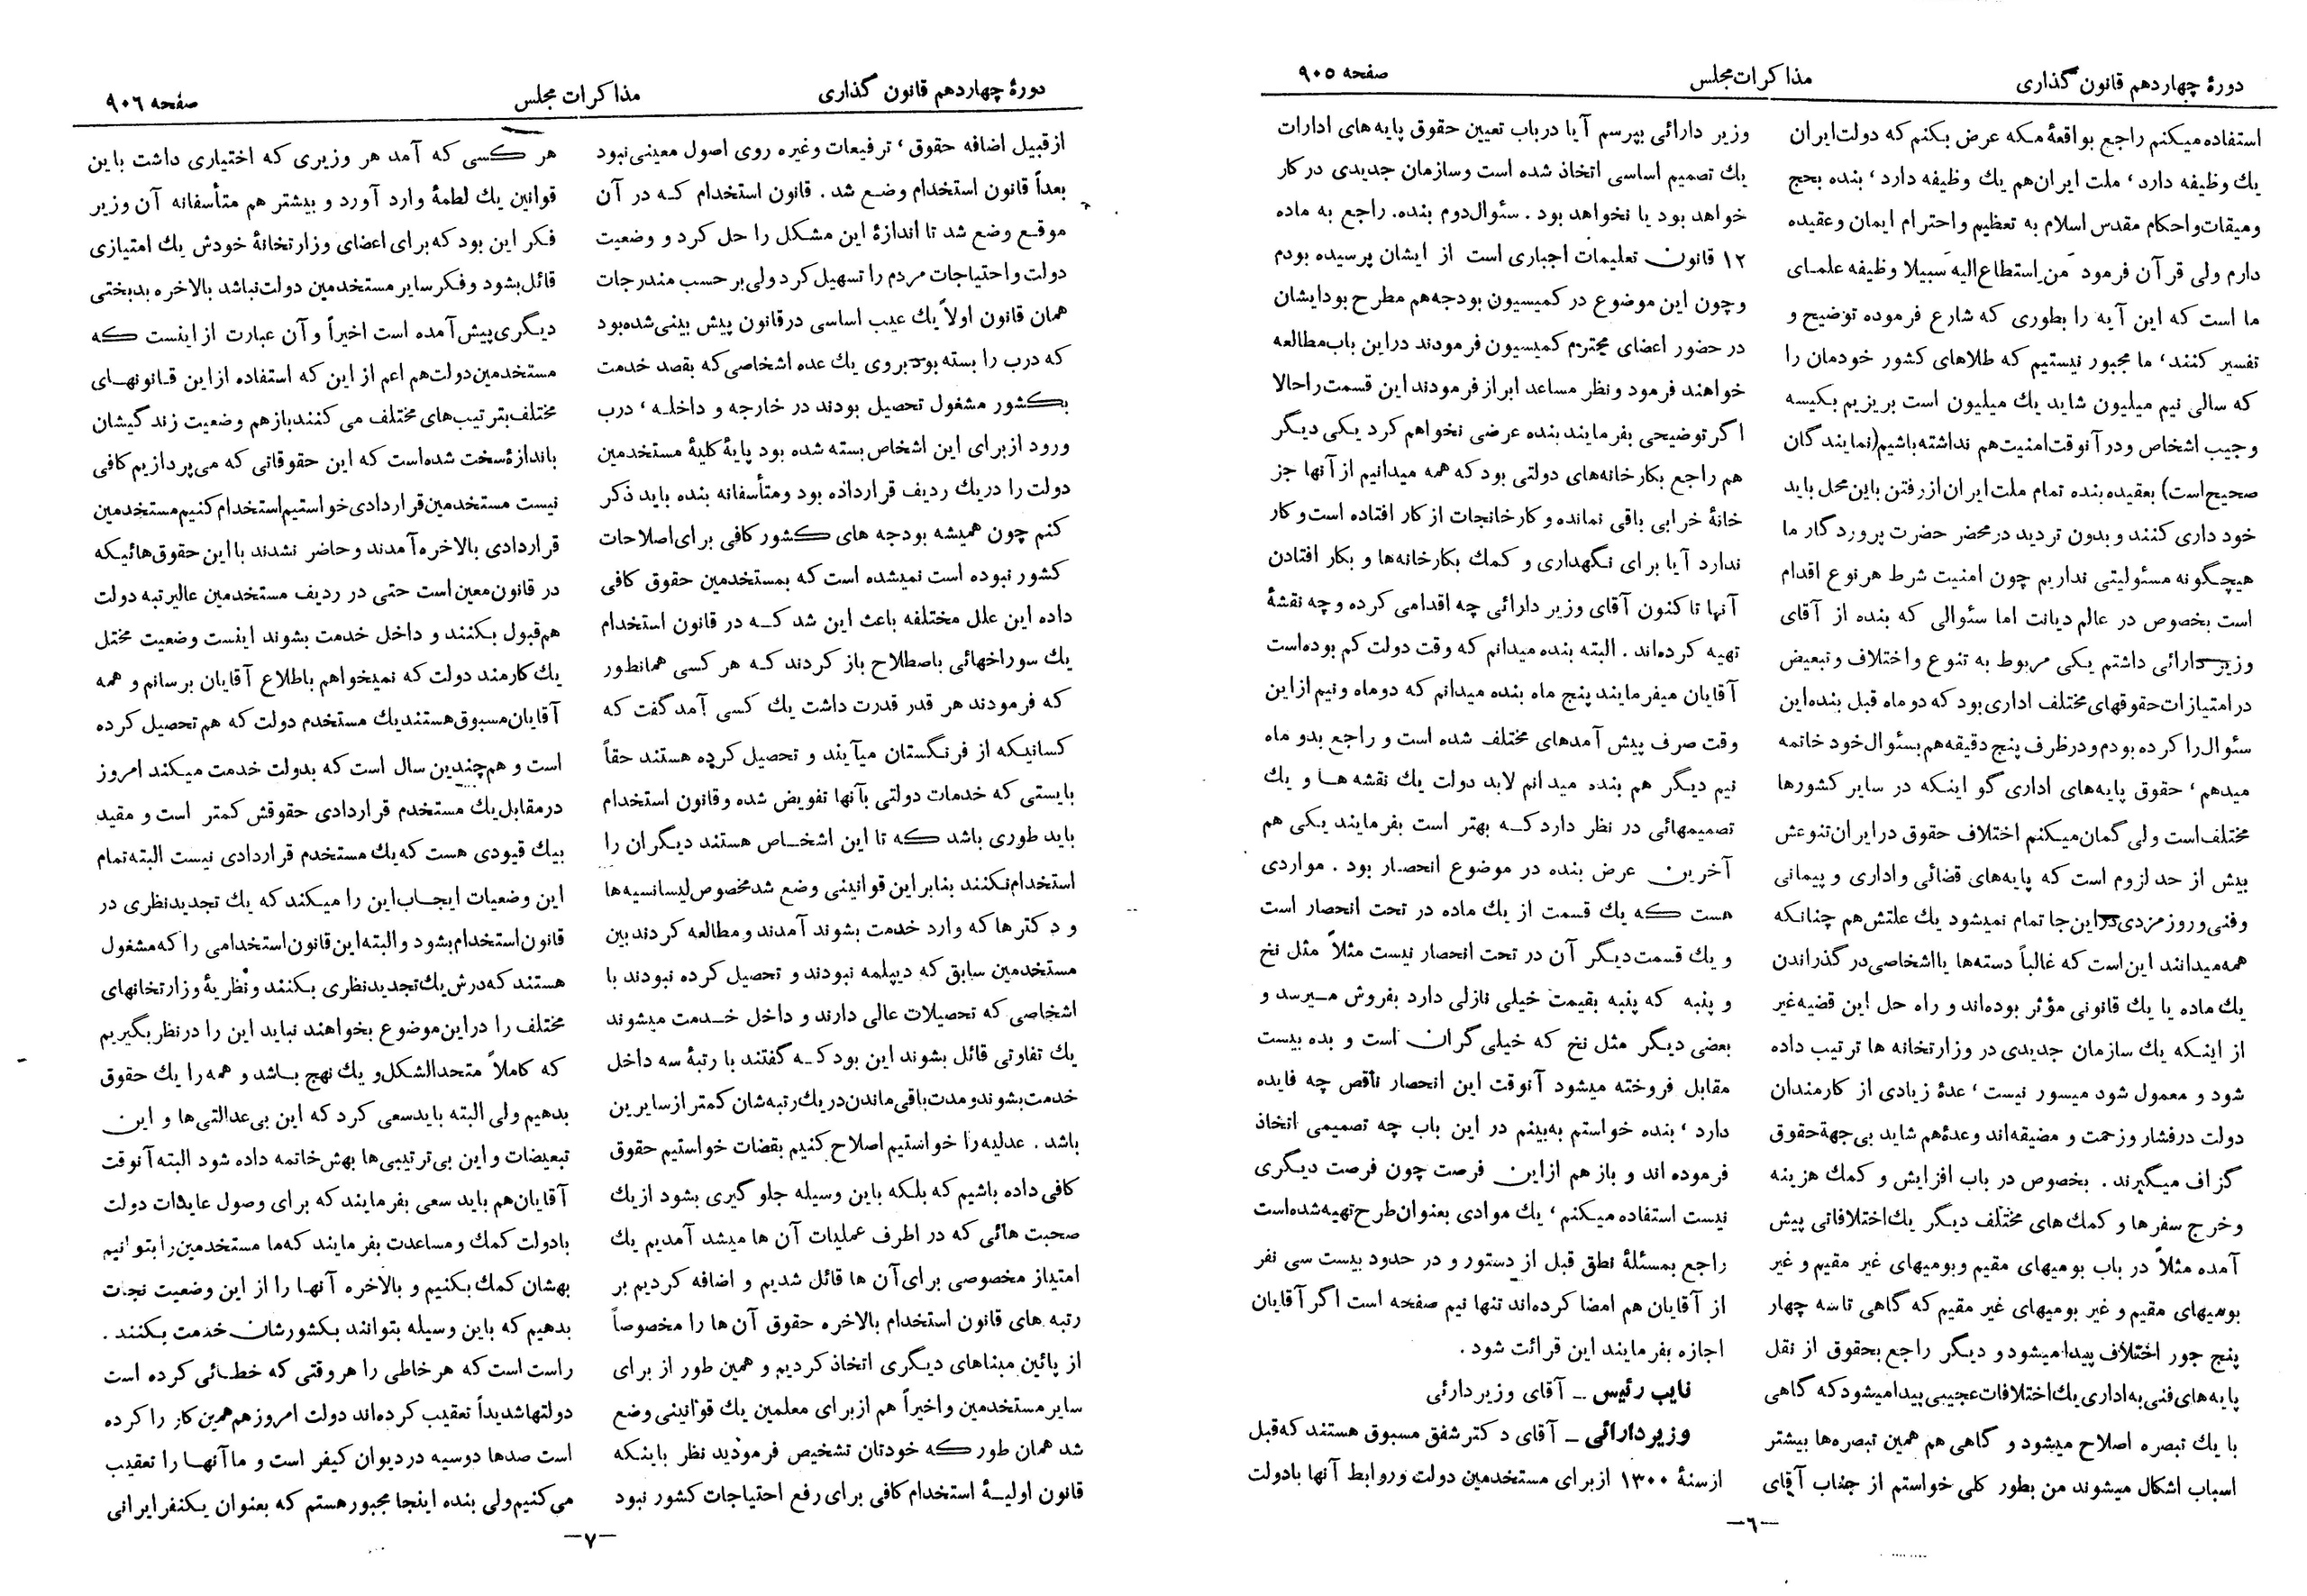 دورهٔ چهاردهم قانون گذاری
مذاکرات مجلس
صفحه ۹۰۵
استفاده میکنم راجع بواقعهٔ مکه عرض بکنم که دولت ایران
یك وظیفه دارد، ملت ایران هم یك وظیفه دارد، بنده بحج
و میقات و احکام مقدس اسلام به تعظیم و احترام ایمان و عقیده
دارم ولی قرآن فرمود من استطاع الیه سبیلا وظیفه علمای
ما است که این آیه را بطوری که شارع فرموده توضیح و
تفسیر کنند، ما مجبور نیستیم که طلاهای کشور خودمان را
که سالی نیم میلیون شاید یك میلیون است بریزیم بکیسه
و جیب اشخاص و در آنوقت امنیت هم نداشته باشیم (نمایندگان
صحیح است) بعقیده بنده تمام ملت ایران از رفتن باین محل باید
خود داری کنند و بدون تردید در محضر حضرت پروردگار ما
هیچگونه مسئولیتی نداریم چون امنیت شرط هر نوع اقدام
است بخصوص در عالم دیانت اما سئوالی که بنده از آقای
وزیر دارائی داشتم یکی مربوط به تنوع و اختلاف و تبعیض
در امتیازات حقوقهای مختلف اداری بود که دو ماه قبل بنده این
سئوال را کرده بودم و در ظرف پنج دقیقه هم بسئوال خود خاتمه
میدهم، حقوق پایه‌های اداری گو اینکه در سایر کشورها
مختلف است ولی گمان میکنم اختلاف حقوق در ایران تنوعش
بیش از حد لزوم است که پایه‌های قضائی و اداری و پیمانی
و فنی و روزمزدی در این جا تمام نمیشود یك علتش هم چنانکه
همه میدانند این است که غالباً دسته‌ها یا اشخاصی در گذراندن
یك ماده یا یك قانونی مؤثر بوده‌اند و راه حل این قضیه غیر
از اینکه یك سازمان جدیدی در وزارتخانه ها ترتیب داده
شود و معمول شود میسور نیست، عدهٔ زیادی از کارمندان
دولت در فشار و زحمت و مضیقه‌اند و عدهٔ هم شاید بی جهة حقوق
گزاف میگیرند . بخصوص در باب افزایش و کمك هزینه
و خرج سفرها و کمك های مختلف دیگر یك اختلافاتی پیش
آمده مثلاً در باب بومیهای مقیم و بومیهای غیر مقیم و غیر
بومیهای مقیم و غیر بومیهای غیر مقیم که گاهی تا سه چهار
پنج جور اختلاف پیدا میشود و دیگر راجع بحقوق از نقل
پایه‌های فنی به اداری یك اختلافات عجیبی پیدا میشود که گاهی
با یك تبصره اصلاح میشود و گاهی هم همین تبصره‌ها بیشتر
اسباب اشکال میشوند من بطور کلی خواستم از جناب آقای
وزیر دارائی بپرسم آیا در باب تعیین حقوق پایه های ادارات
یك تصمیم اساسی اتخاذ شده است و سازمان جدیدی در کار
خواهد بود یا نخواهد بود . سئوال دوم بنده. راجع به ماده
۱۲ قانون تعلیمات اجباری است از ایشان پرسیده بودم
و چون این موضوع در کمیسیون بودجه هم مطرح بود ایشان
در حضور اعضای محترم کمیسیون فرمودند در این باب مطالعه
خواهند فرمود و نظر مساعد ابراز فرمودند این قسمت را حالا
اگر توضیحی بفرمایند بنده عرضی نخواهم کرد یکی دیگر
هم راجع بکارخانه‌های دولتی بود که همه میدانیم از آنها جز
خانهٔ خرابی باقی نمانده و کارخانجات از کار افتاده است و کار
ندارد آیا برای نگهداری و کمك بکارخانه‌ها و بکار افتادن
آنها تا کنون آقای وزیر دارائی چه اقدامی کرده و چه نقشهٔ
تهیه کرده‌اند . البته بنده میدانم که وقت دولت کم بوده است
آقایان میفرمایند پنج ماه بنده میدانم که دو ماه و نیم از این
وقت صرف پیش آمدهای مختلف شده است و راجع بدو ماه
نیم دیگر هم بنده میدانم لابد دولت یك نقشه ها و یك
تصمیمهائی در نظر دارد که بهتر است بفرمایند یکی هم
آخرین عرض بنده در موضوع انحصار بود . مواردی
هست که یك قسمت از یك ماده در تحت انحصار است
و یك قسمت دیگر آن در تحت انحصار نیست مثلاً مثل نخ
و پنبه که پنبه بقیمت خیلی نازلی دارد بفروش میرسد و
بعضی دیگر مثل نخ که خیلی گران است و بده بیست
مقابل فروخته میشود آنوقت این انحصار ناقص چه فایده
دارد، بنده خواستم به‌بینم در این باب چه تصمیمی اتخاذ
فرموده اند و باز هم از این فرصت چون فرصت دیگری
نیست استفاده میکنم، یك موادی بعنوان طرح تهیه شده است
راجع بمسئلهٔ نطق قبل از دستور و در حدود بیست سی نفر
از آقایان هم امضا کرده‌اند تنها نیم صفحه است اگر آقایان
اجازه بفرمایند این قرائت شود .
نایب رئیس – آقای وزیر دارئی
وزیر دارائی – آقای دکتر شفق مسبوق هستند که قبل
از سنهٔ ۱۳۰۰ از برای مستخدمین دولت و روابط آنها با دولت
–٦–
دورهٔ چهاردهم قانون گذاری
مذاکرات مجلس
صفحه ۹۰٦
از قبیل اضافه حقوق، ترفیعات و غیره روی اصول معینی نبود
بعداً قانون استخدام وضع شد . قانون استخدام که در آن
موقع وضع شد تا اندازهٔ این مشکل را حل کرد و وضعیت
دولت و احتیاجات مردم را تسهیل کرد ولی بر حسب مندرجات
همان قانون اولاً یك عیب اساسی در قانون پیش بینی شده بود
که درب را بسته بود بروی یك عده اشخاصی که بقصد خدمت
بکشور مشغول تحصیل بودند در خارجه و داخله، درب
ورود از برای این اشخاص بسته شده بود پایهٔ کلیهٔ مستخدمین
دولت را در یك ردیف قرار داده بود و متأسفانه بنده باید ذکر
کنم چون همیشه بودجه های کشور کافی برای اصلاحات
کشور نبوده است نمیشده است که بمستخدمین حقوق کافی
داده این علل مختلفه باعث این شد که در قانون استخدام
یك سوراخهائی باصطلاح باز کردند که هر کسی همانطور
که فرمودند هر قدر قدرت داشت یك کسی آمد گفت که
کسانیکه از فرنگستان میآیند و تحصیل کرده هستند حقاً
بایستی که خدمات دولتی بآنها تفویض شده و قانون استخدام
باید طوری باشد که تا این اشخاص هستند دیگران را
استخدام نکنند بنابر این قوانینی وضع شد مخصوص لیسانسیه‌ها
و دکترها که وارد خدمت بشوند آمدند و مطالعه کردند بین
مستخدمین سابق که دیپلمه نبودند و تحصیل کرده نبودند با
اشخاصی که تحصیلات عالی دارند و داخل خدمت میشوند
یك تفاوتی قائل بشوند این بود که گفتند با رتبهٔ سه داخل
خدمت بشوند و مدت باقی ماندن در یك رتبه‌شان کمتر از سایرین
باشد . عدلیه را خواستیم اصلاح کنیم بقضات خواستیم حقوق
کافی داده باشیم که بلکه باین وسیله جلوگیری بشود از یك
صحبت هائی که در اطرف عملیات آن ها میشد آمدیم یك
امتیاز مخصوصی برای آن ها قائل شدیم و اضافه کردیم بر
رتبه های قانون استخدام بالاخره حقوق آن ها را مخصوصاً
از پائین مبناهای دیگری اتخاذ کردیم و همین طور از برای
سایر مستخدمین و اخیراً هم از برای معلمین یك قوانینی وضع
شد همان طور که خودتان تشخیص فرمودید نظر باینکه
قانون اولیهٔ استخدام کافی برای رفع احتیاجات کشور نبود
هر کسی که آمد هر وزیری که اختیاری داشت باین
قوانین یك لطمهٔ وارد آورد و بیشتر هم متأسفانه آن وزیر
فکر این بود که برای اعضای وزارتخانهٔ خودش یك امتیازی
قائل بشود و فکر سایر مستخدمین دولت نباشد بالاخره بدبختی
دیگری پیش آمده است اخیراً و آن عبارت از اینست که
مستخدمین دولت هم اعم از این که استفاده از این قانونهای
مختلف بترتیب‌های مختلف می کنند باز هم وضعیت زندگیشان
باندازهٔ سخت شده است که این حقوقاتی که می پردازیم کافی
نیست مستخدمین قراردادی خواستیم استخدام کنیم مستخدمین
قراردادی بالاخره آمدند و حاضر نشدند با این حقوق‌هائیکه
در قانون معین است حتی در ردیف مستخدمین عالیرتبه دولت
هم قبول بکنند و داخل خدمت بشوند اینست وضعیت مختل
یك کارمند دولت که نمیخواهم باطلاع آقایان برسانم و همه
آقایان مسبوق هستند یك مستخدم دولت که هم تحصیل کرده
است و هم چندین سال است که بدولت خدمت میکند امروز
در مقابل یك مستخدم قراردادی حقوقش کمتر است و مقید
بیك قیودی هست که یك مستخدم قراردادی نیست البته تمام
این وضعیات ایجاب این را میکند که یك تجدید نظری در
قانون استخدام بشود و البته این قانون استخدامی را که مشغول
هستند که درش یك تجدید نظری بکنند و نظریهٔ وزارتخانهای
مختلف را در این موضوع بخواهند نباید این را در نظر بگیریم
که کاملاً متحد الشکل و یك نهج باشد و همه را یك حقوق
بدهیم ولی البته باید سعی کرد که این بی عدالتی‌ها و این
تبعیضات و این بی ترتیبی‌ها بهش خاتمه داده شود البته آنوقت
آقایان هم باید سعی بفرمایند که برای وصول عایدات دولت
با دولت کمك و مساعدت بفرمایند که ما مستخدمین را بتوانیم
بهشان کمك بکنیم و بالاخره آنها را از این وضعیت نجات
بدهیم که باین وسیله بتوانند بکشورشان خدمت بکنند .
راست است که هر خاطی را هر وقتی که خطائی کرده است
دولتها شدیداً تعقیب کرده‌اند دولت امروز هم همین کار را کرده
است صدها دوسیه در دیوان کیفر است و ما آنها را تعقیب
می کنیم ولی بنده اینجا مجبور هستم که بعنوان یکنفر ایرانی
–۷–